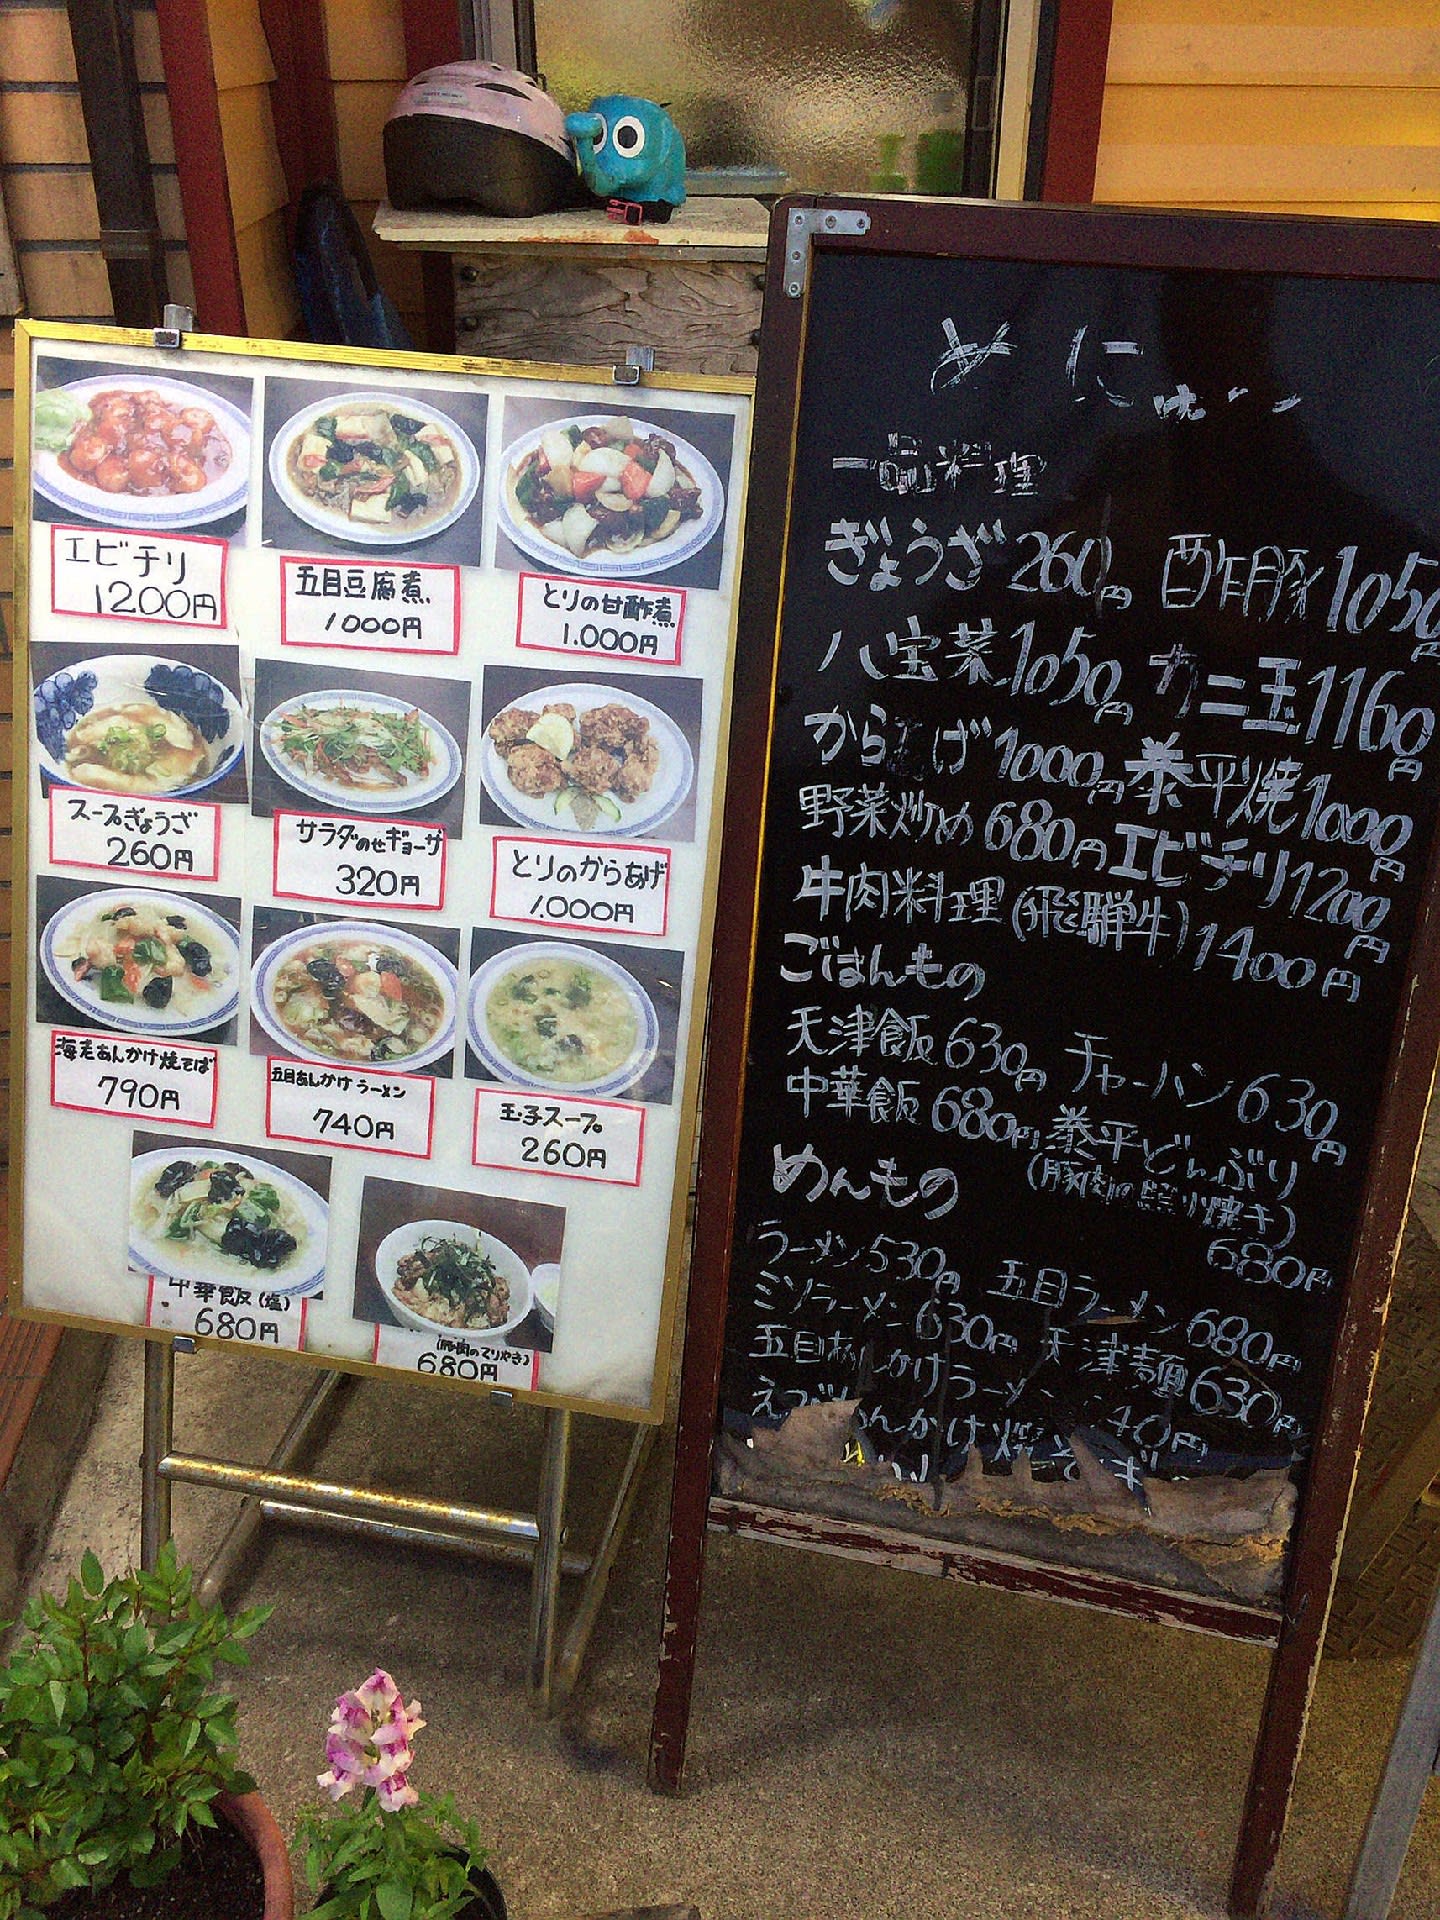 エビチリ
1200円
五目豆腐煮
1000円
とりの甘酢煮
1.000円
スープぎょうざ
260円
サラダのせギョーザ
320円
とりのからあげ
1.000円
海老あんかけ焼そば
790円
五目あんかけラーメン
740円
玉子スープ
260円
中華飯(塩)
680円
(豚肉のてりやき)
680円
めにゅー
一品料理
ぎょうざ260円 酢豚1050円
八宝菜1050円 カニ玉1160円
からあげ1000円 泰平焼1000円
野菜炒め680円 エビチリ1200円
牛肉料理(飛騨牛)1400円
ごはんもの
天津飯630円 チャーハン630円
中華飯680円 泰平どんぶり
(豚肉の照り焼き)
680円
めんもの
ラーメン530円 五目ラーメン680円
ミソラーメン630円 天津麺630円
五目あんかけラーメン 40円
あんかけ焼そば